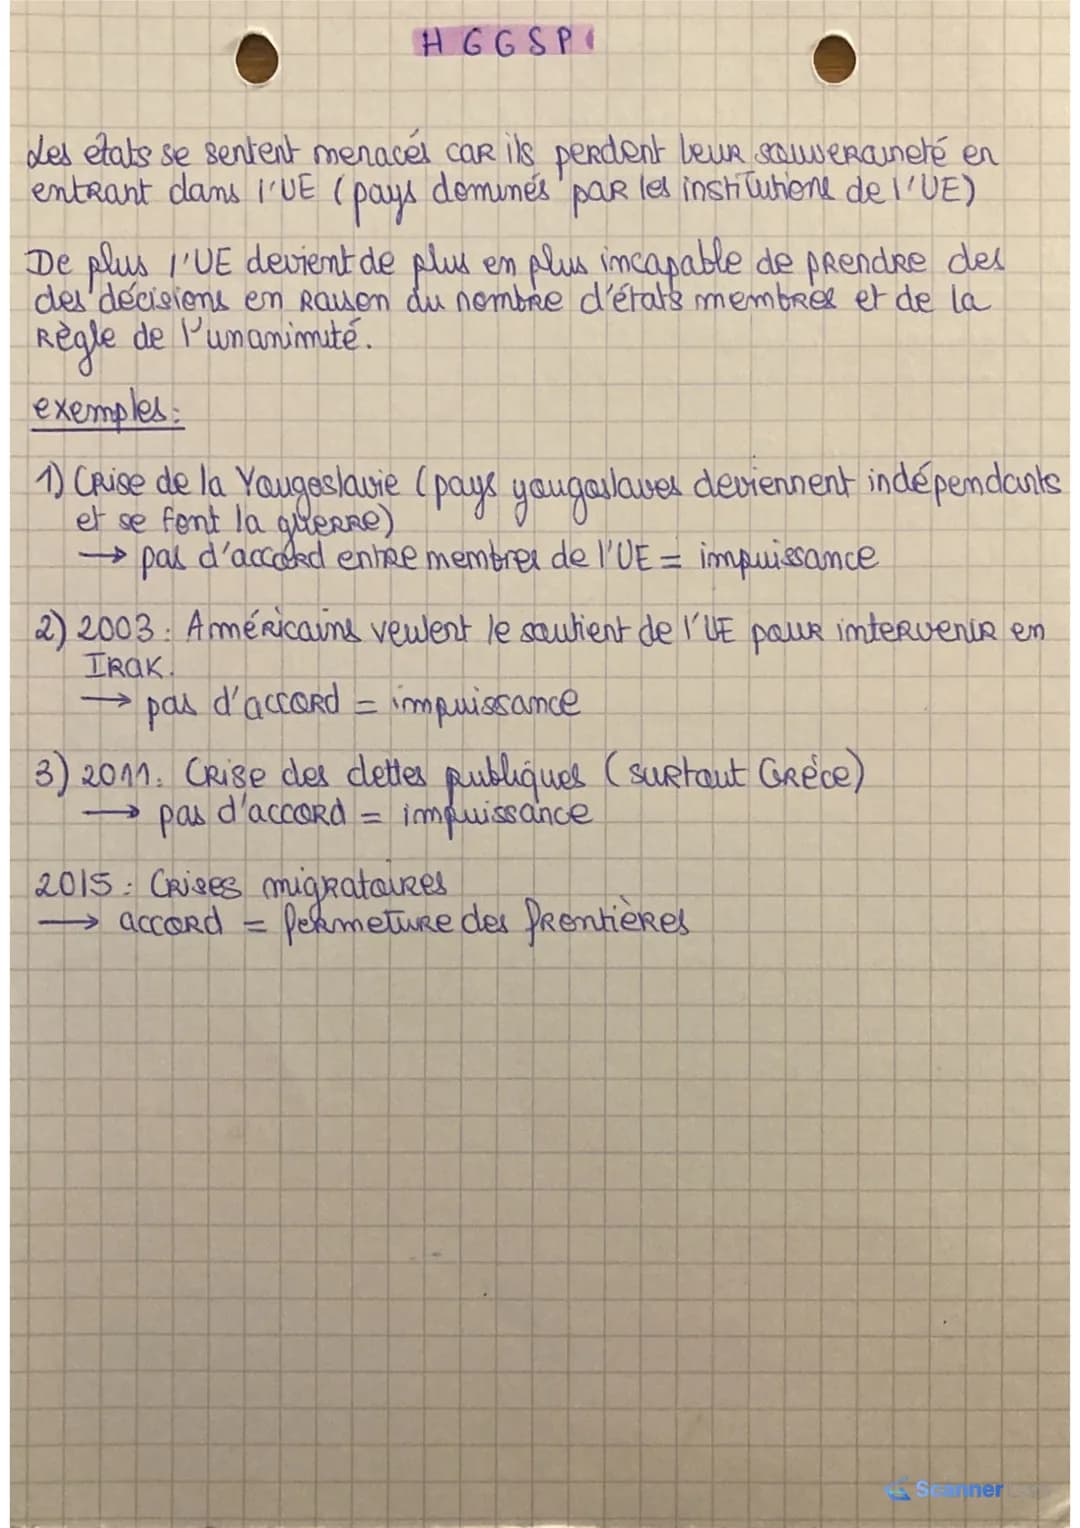 HGGSP
Les états se sentent menacés car ils perdent leur souveraineté en
entrant dans l'UE (pays dominés par les institutions de l'UE)
De plus l'UE devient de plus en plus incapable de prendre des
des décisions en raison du nombre d'états membres et de la
Règle de l'unanimité.
exemples:
1) Crise de la Yougoslavie (pays yougoslaves deviennent indépendants
et se font la guerre)
→ pas d'accord entre membres de l'UE = impuissance
2) 2003: Américains veulent le soutient de l'UE pour intervenir en
Irak.
→ pas d'accord = impuissance
3) 2011: Crise des dettes publiques (surtout Grèce)
→ pas d'accord = impuissance
2015: Crises migratoires
→ accord = fermeture des frontières
Scanner